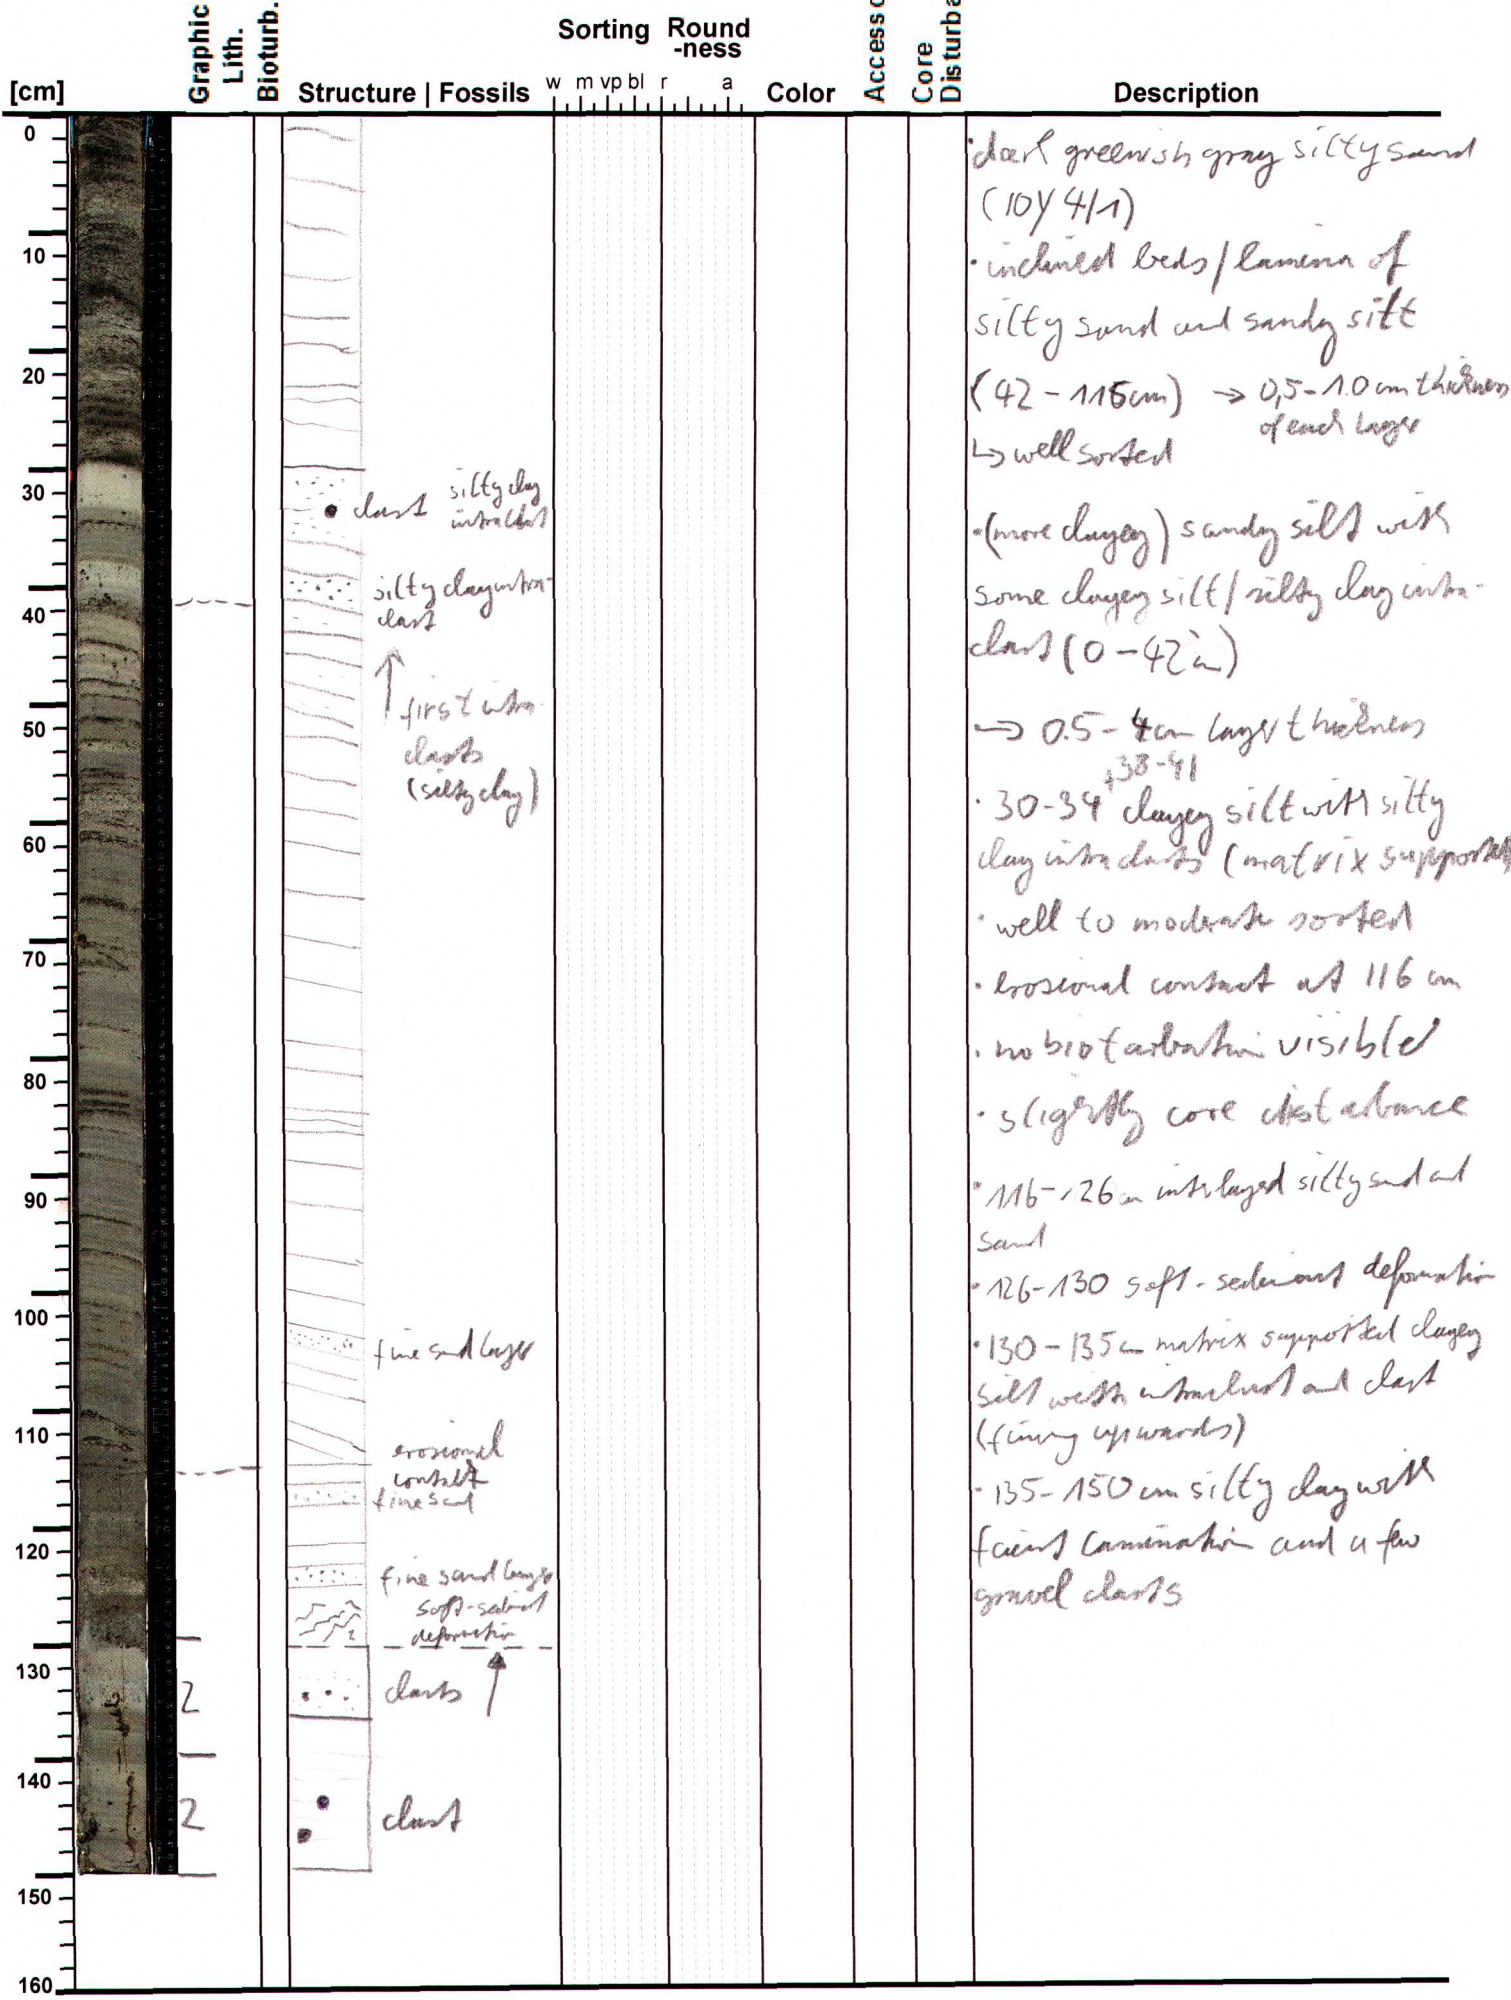 [cm]
Graphic
Lith.
Bioturb.
Structure | Fossils
Sorting
Round
-ness
w m vp bl r a
Color
Access
Core
Disturba
Description
0
10
20
30
40
50
60
70
80
90
100
110
120
130
140
150
160
2
2
clast silty clay
intraclast
silty clay intra-
clast
first intra-
clasts
(silty clay)
fine sand layer
erosional
contact
fine sand
fine sand layer
soft-sediment
deformation
2
clasts
clast
· dark greenish gray silty sand
(10Y 4/1)
· inclined beds/lamina of
silty sand and sandy silt
(42-116cm) → 0,5-1.0 cm thickness
of each layer
↳ well sorted
· (more clayey) sandy silt with
some clayey silt/silty clay intra-
clast (0-42cm)
→ 0.5-4cm layer thickness
+38-41
· 30-34 clayey silt with silty
clay intraclasts (matrix supported)
· well to moderate sorted
· erosional contact at 116 cm
· no bioturbation visible
· slightly core disturbance
· 116-126cm interlayed silty sand and
sand
· 126-130 soft-sediment deformation
· 130-135cm matrix supported clayey
silt with intraclast and clast
(fining upwards)
· 135-150cm silty clay with
faint lamination and a few
gravel clasts